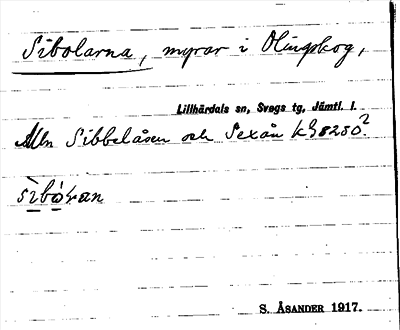 Sibolarna, myrar i Olingskog,
Lillhärdals sn, Svegs tg, Jämtl. l.
Mln Sibbelåsen och Sexån k 98250?
S. ÅSANDER 1917.